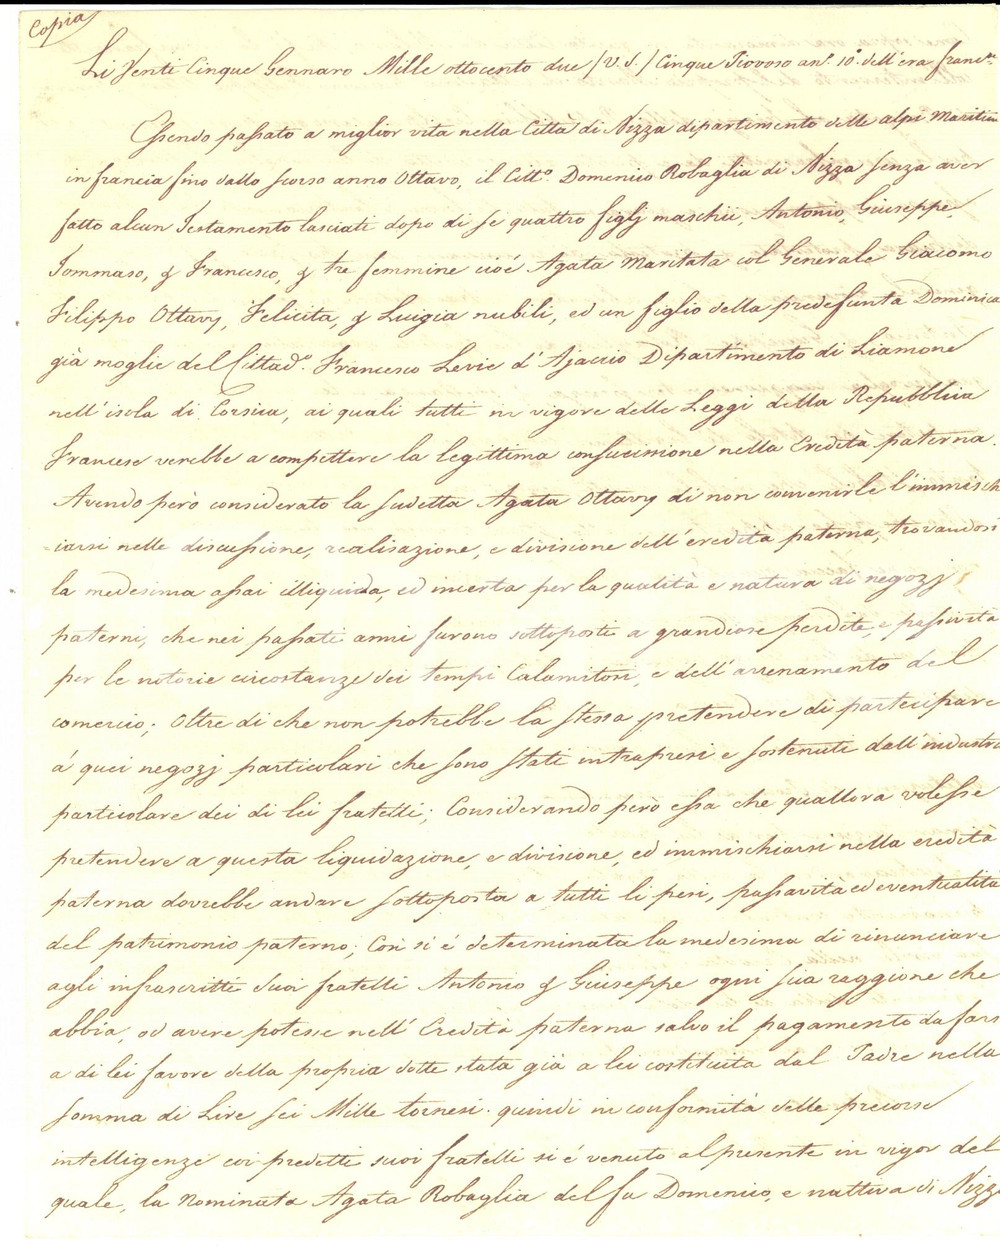 Copia
Li Venti Cinque Gennaro Mille ottocento due /V. S./ Cinque Piovoso an.° 10.° dell'era franc.e
Essendo passato a miglior vita nella Città di Nizza dipartimento delle alpi Maritim
in francia fino dallo scorso anno Ottavo, il Citt.° Domenico Robaglia di Nizza senza aver
fatto alcun Testamento lasciati dopo di se quattro figlj maschii, Antonio, Giuseppe,
Tommaso, & Francesco, & tre femmine cioé Agata Maritata col Generale Giacomo
Filippo Ottavy, Felicita, & Luigia nubili, ed un figlio della predefunta Dominica
già moglie del Cittad.° Francesco Levie d'Ajaccio Dipartimento di Liamone
nell'isola di Corsica, ai quali tutti in vigore delle Leggi della Repubblica
Francese verebbe a compettere la legittima consucissione nella Eredità paterna.
Avendo però considerato la sudetta Agata Ottavy di non convenirle l'immisch
=iarsi nelle discussione, realisazione, e divisione dell'eredità paterna, trovandosi
la medesima assai illiquida, ed incerta per la qualità e natura di negozj
paterni, che nei passati anni furono sottoposti a grandiose perdite, e passività
per le notorie circostanze dei tempi Calamitosi, e dell'arrenamento del
comercio; Oltre di che non potrebbe la stessa pretendere di participare
á quei negozj particolari che sono stati intrapresi e sostenuti dall'industria
particolare dei di lei fratelli; Considerando però essa che quallora volesse
pretendere a questa liquidazione, e divisione, ed immischiarsi nella eredità
paterna dovrebbe andare sottoposta a tutti li pesi, passavità ed eventualità
del patrimonio paterno; Cosi si é determinata la medesima di rinunciare
agli infrascritti suoi fratelli Antonio & Giuseppe ogni sua raggione che
abbia, od avere potesse nell'Eredità paterna salvo il pagamento da fars
a di lei favore della propria dotte stata già a lei costituita dal Padre nella
somma di Lire Sei Mille tornesi. quindi in conformità delle precorse
intelligenze coi predetti suoi fratelli si é venuto al presente in vigor del
quale, la Nominata Agata Robaglia del fu Domenico, e nattiva di Nizza